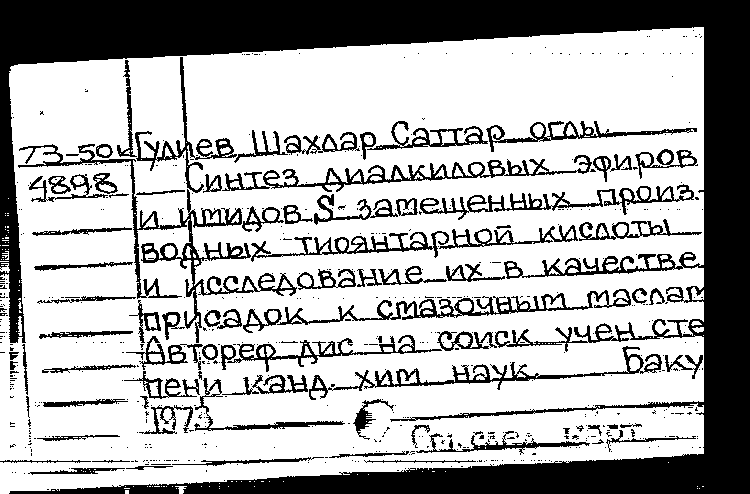 73-50к Гулиев, Шахлар Саттар оглы.
4898 Синтез диалкиловых эфиров
и имидов S-замещенных произ-
водных тиоянтарной кислоты
и исследование их в качестве
присадок к смазочным маслам
Автореф дис на соиск учен сте
пени канд. хим. наук. Баку
1973
См. след. карт.